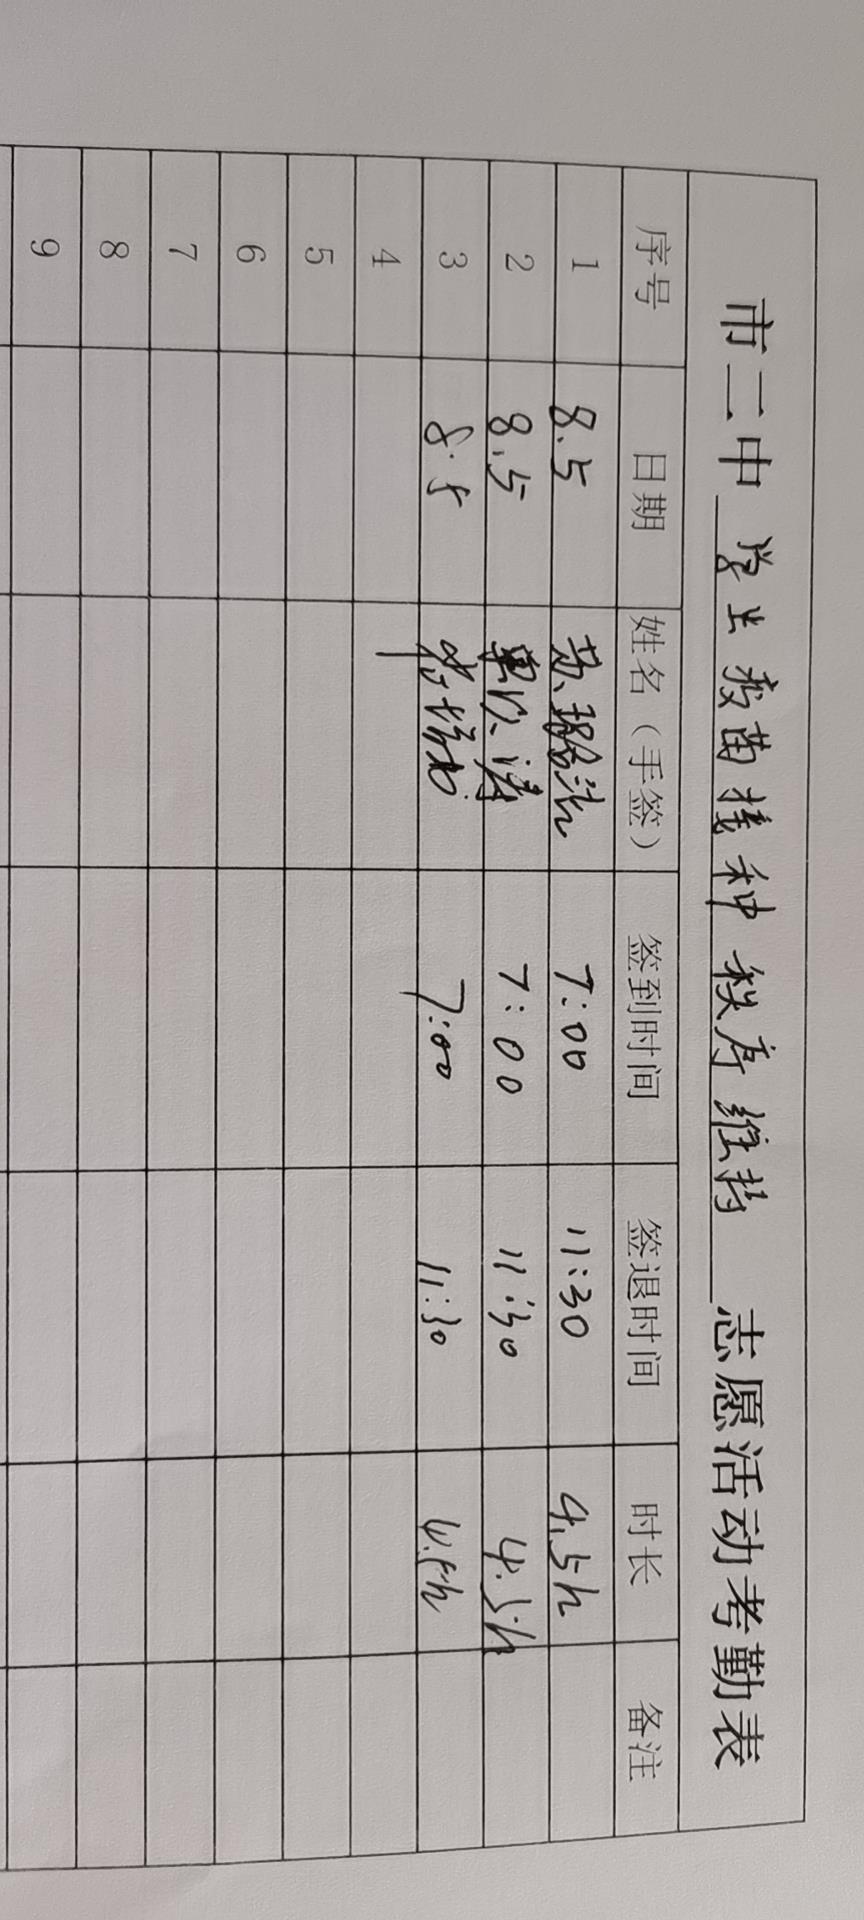 市二中 学生疫苗接种秩序维持 志愿活动考勤表
序号 日期 姓名（手签） 签到时间 签退时间 时长 备注
1 8.5 7:00 11:30 4.5h
2 8.5 7:00 11:30 4.5h
3 8.5 7:00 11:30 4.5h
4
5
6
7
8
9